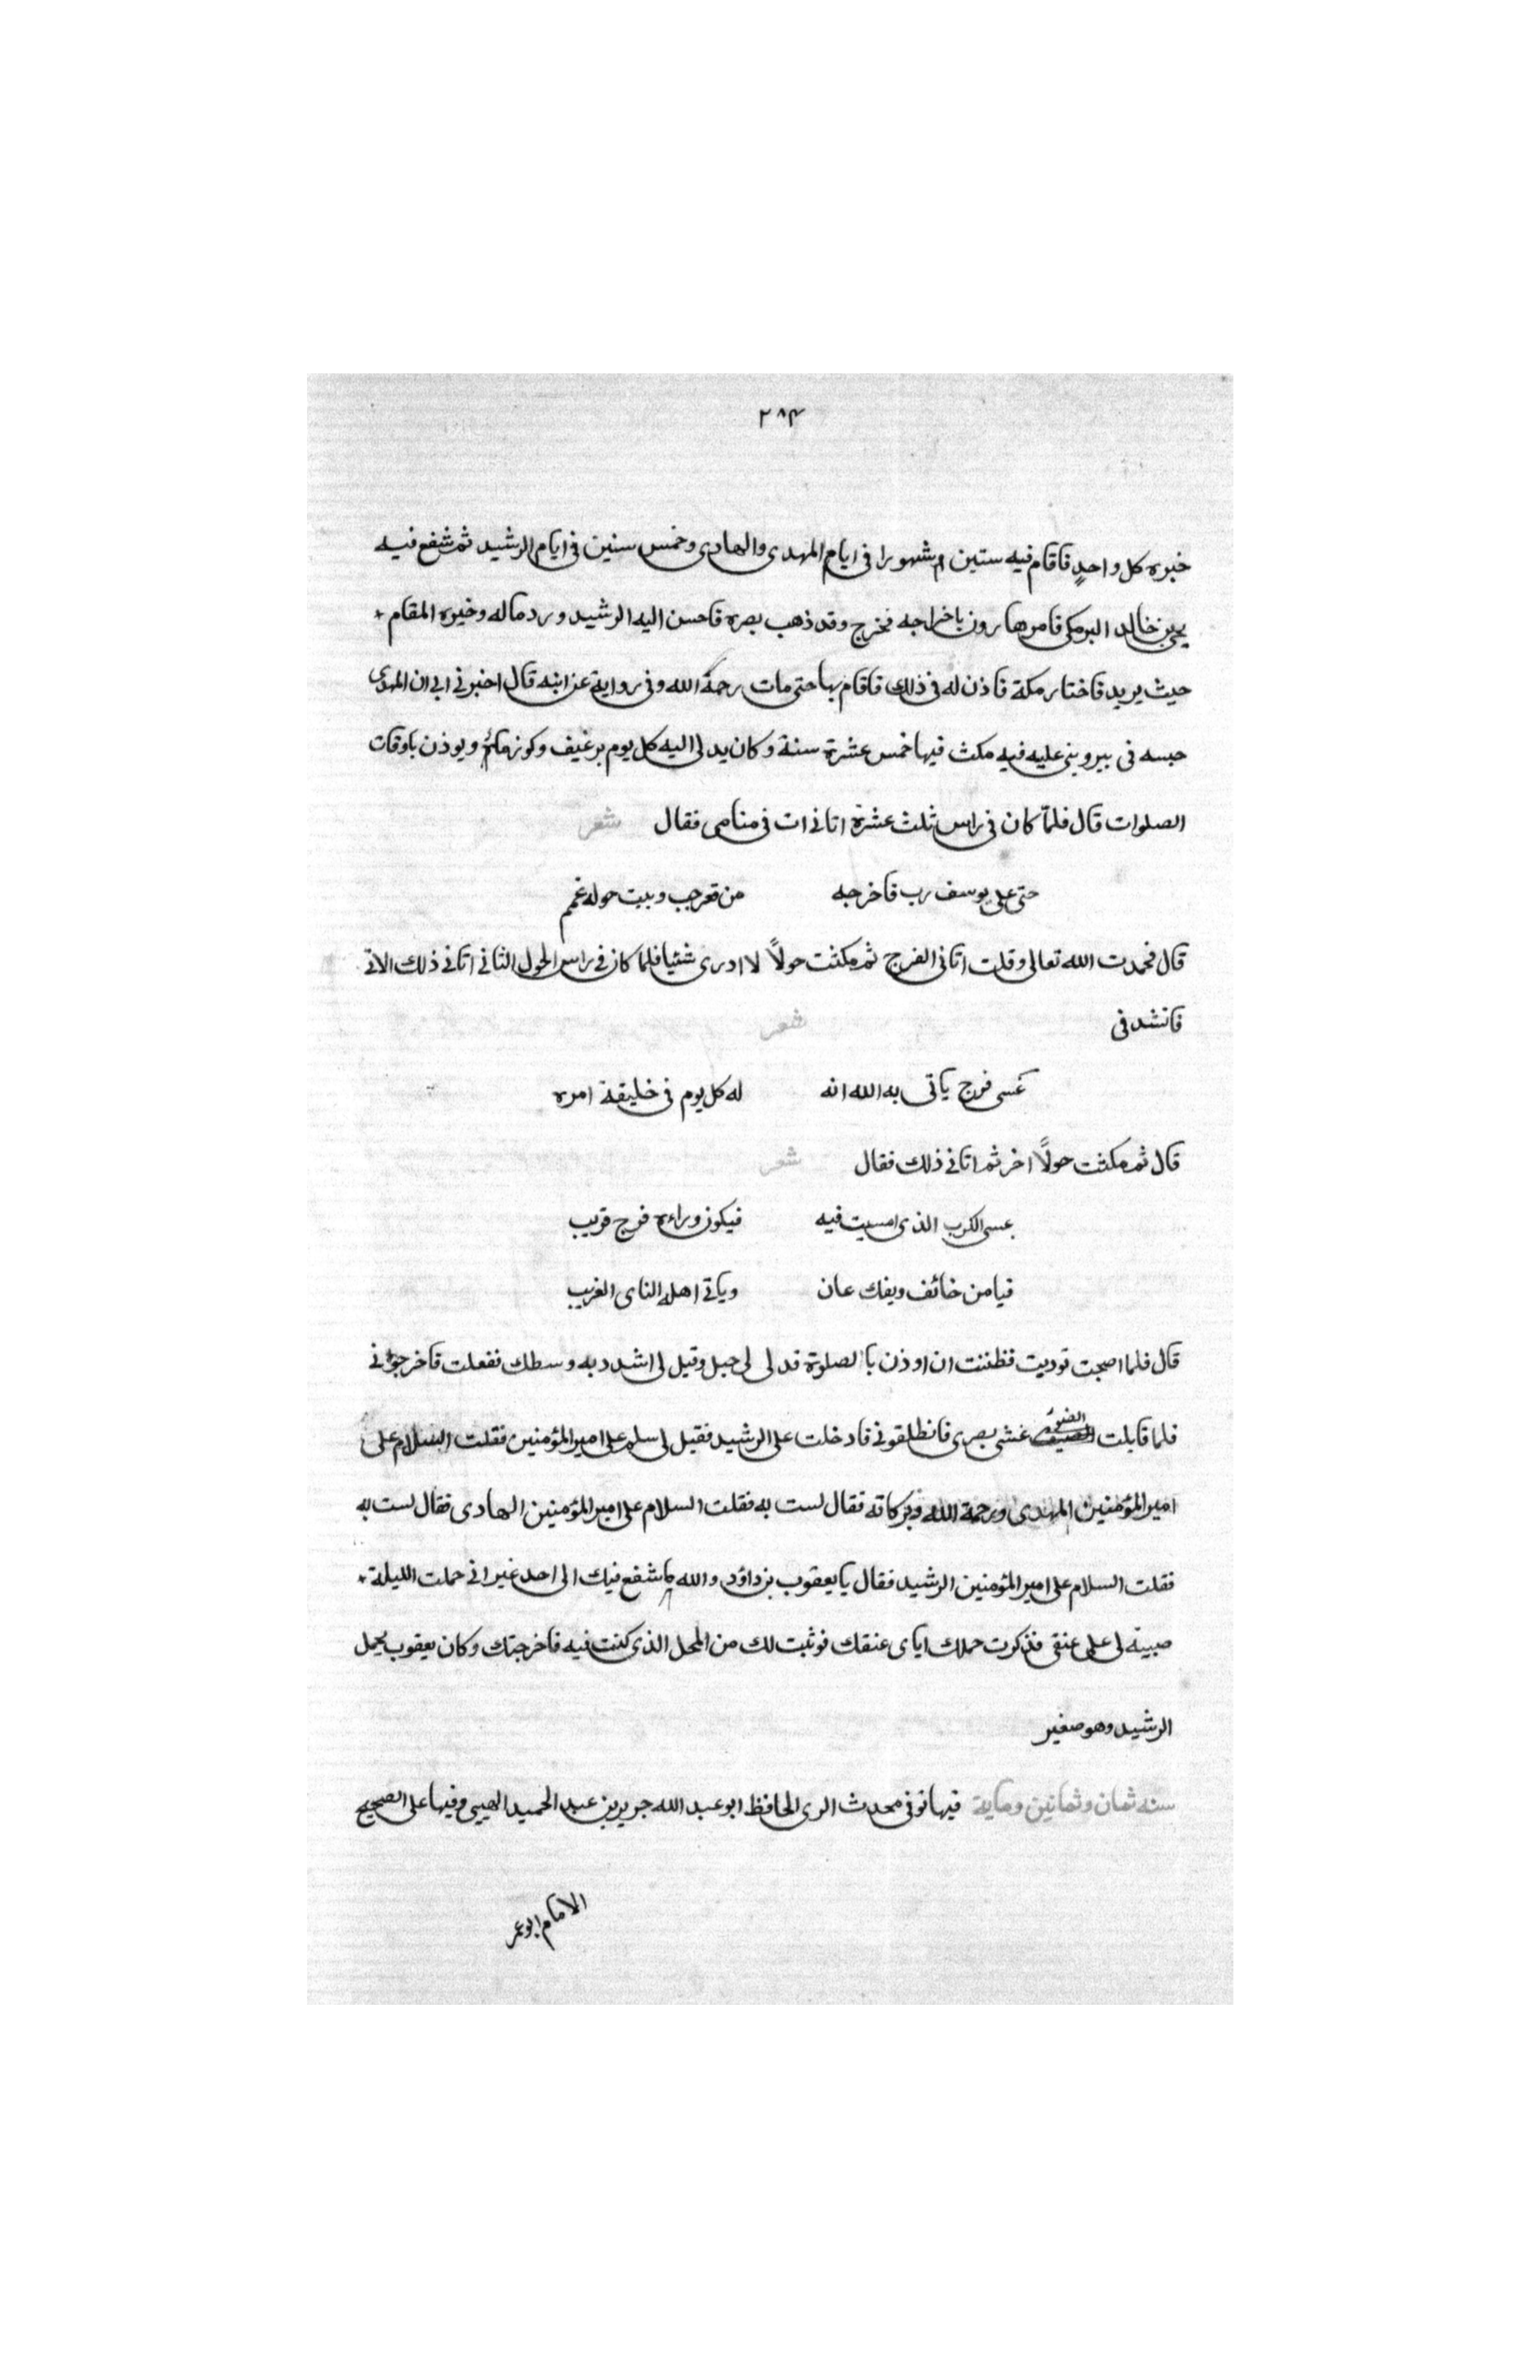 ٢٨٤
خبره كل واحدٍ فاقام فيه سنتين و شهورا فى ايام المهدى والهادى وخمس سنين فى ايام الرشيد ثم شفع فيه
يحيى بن خالد البرمكى فامر هارون باخراجه فخرج وقد ذهب بصره فاحسن اليه الرشيد ورد ماله وخيره المقام
حيث يريد فاختار مكة فاذن له فى ذلك فاقام بها حتى مات رحمة الله وفى رواية عن ابنه قال اخبرنى ابى ان المهدى
حبسه فى بير وبنى عليه فيه مكث فيها خمس عشرة سنة وكان يدلى اليه كل يوم برغيف وكوز ماءٍ ويوذن باوقات
الصلوات قال فلمّا كان فى راس ثلث عشرة اتانى ات فى منامى فقال شعر
حتى على يوسف رب فاخرجه من قعر جب وبيت حوله غمم
قال فحمدت الله تعالى وقلت اتانى الفرج ثم مكثت حولاً لا ادرى شئيا فلما كان فى راس الحول الثانى اتانى ذلك الاتى
فانشدنى شعر
عسى فرج ياتى به الله انه له كل يوم فى خليقة امره
قال ثم مكثت حولاً اخر ثم اتانى ذلك فقال شعر
عسى الكرب الذى امسيت فيه فيكون وراءه فرج قريب
فيامن خائف ويفك عان وياتى اهله الناى الغريب
قال فلما اصبحت نوديت فظننت ان اوذن بالصلوة فدلى لى حبل وقيل لى اشدد به وسطك ففعلت فاخرجونى
فلما قابلت الضوء غشى بصرى فانطلقونى فادخلت على الرشيد فقيل لى سلم على امير المؤمنين فقلت السلام على
امير المؤمنين المهدى ورحمة الله وبركاته فقال لست به فقلت السلام على امير المؤمنين الهادى فقال لست به
فقلت السلام على امير المؤمنين الرشيد فقال يا يعقوب بن داؤد والله ما شفع فيك الى احد غير انى حملت الليلة
صبية لى على عنقى فذكرت حملك اياى عنقك فوثبت لك من المحل الذى كنت فيه فاخرجتك وكان يعقوب يحمل
الرشيد وهو صغير
سنه ثمان وثمانين وماية فيها توفى محدث الرى الحافظ ابو عبد الله جرير بن عبد الحميد الضبى وفيها على الصحيح
الامام ابو عمر